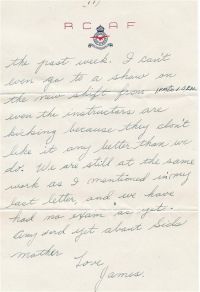 (2)
R C A F
the past week. I can't
even go to a show on
the new shift from
even the instructors are
kicking because they don't
like it any better than we
do. We are still at the same
work as I mentioned in my
last letter, and we have
had no exam as yet.
Any word yet about Sids
mother
Love
James.